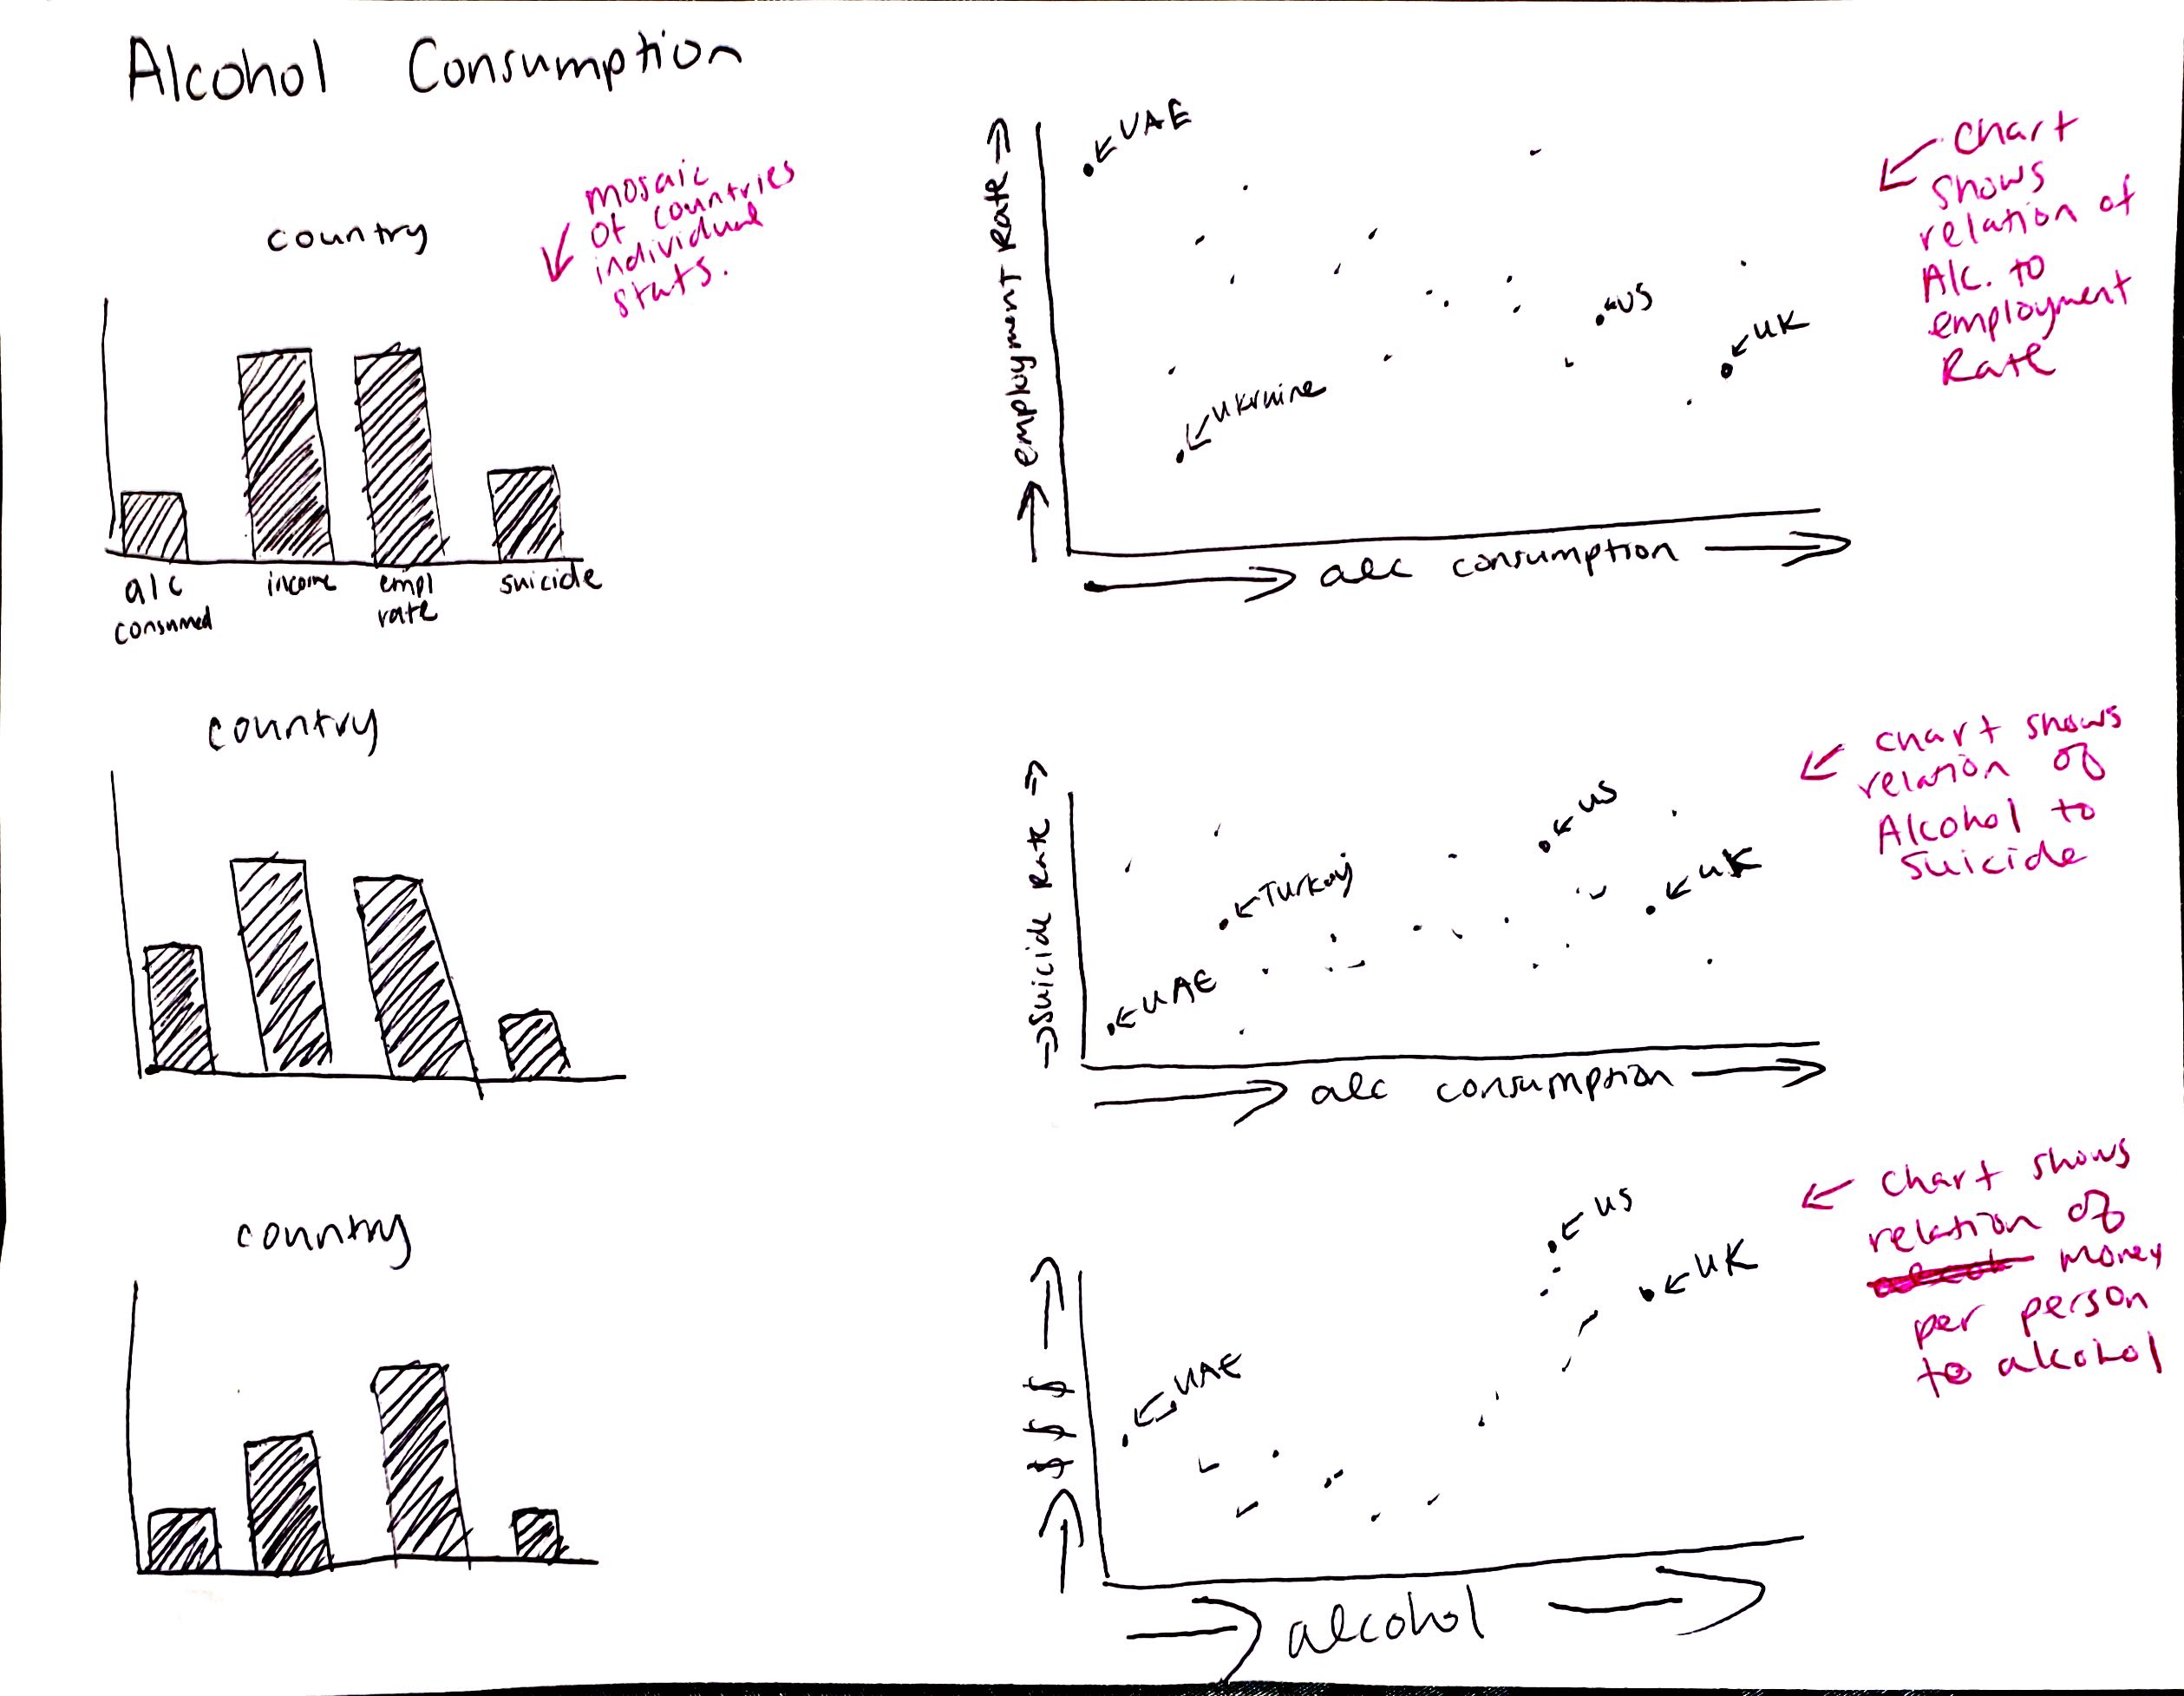 Alcohol Consumption
country
mosaic
of countries
individual
stats.
alc
consumed
income
empl
rate
suicide
employment Rate
UAE
US
UK
Ukraine
alc consumption
Chart
shows
relation of
Alc. to
employment
Rate
country
Suicide Rate
US
Turkey
UK
UAE
alc consumption
chart shows
relation of
Alcohol to
suicide
country
$ $ $
US
UK
UAE
alcohol
chart shows
relation of
money
per person
to alcohol